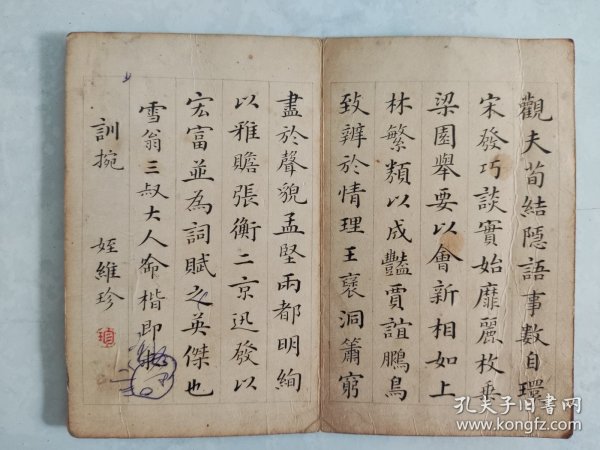 觀夫荀結隱語事數自環
宋發巧談實始靡麗枚乘
梁園舉要以會新相如上
林繁類以成豔賈誼鵩鳥
致辨於情理王襃洞簫窮
盡於聲貌孟堅兩都明絢
以雅贍張衡二京迅發以
宏富並為詞賦之英傑也
雪翁三叔大人命楷即祈
訓捥
姪維珍
孔夫子旧书网
www.kongfz.com